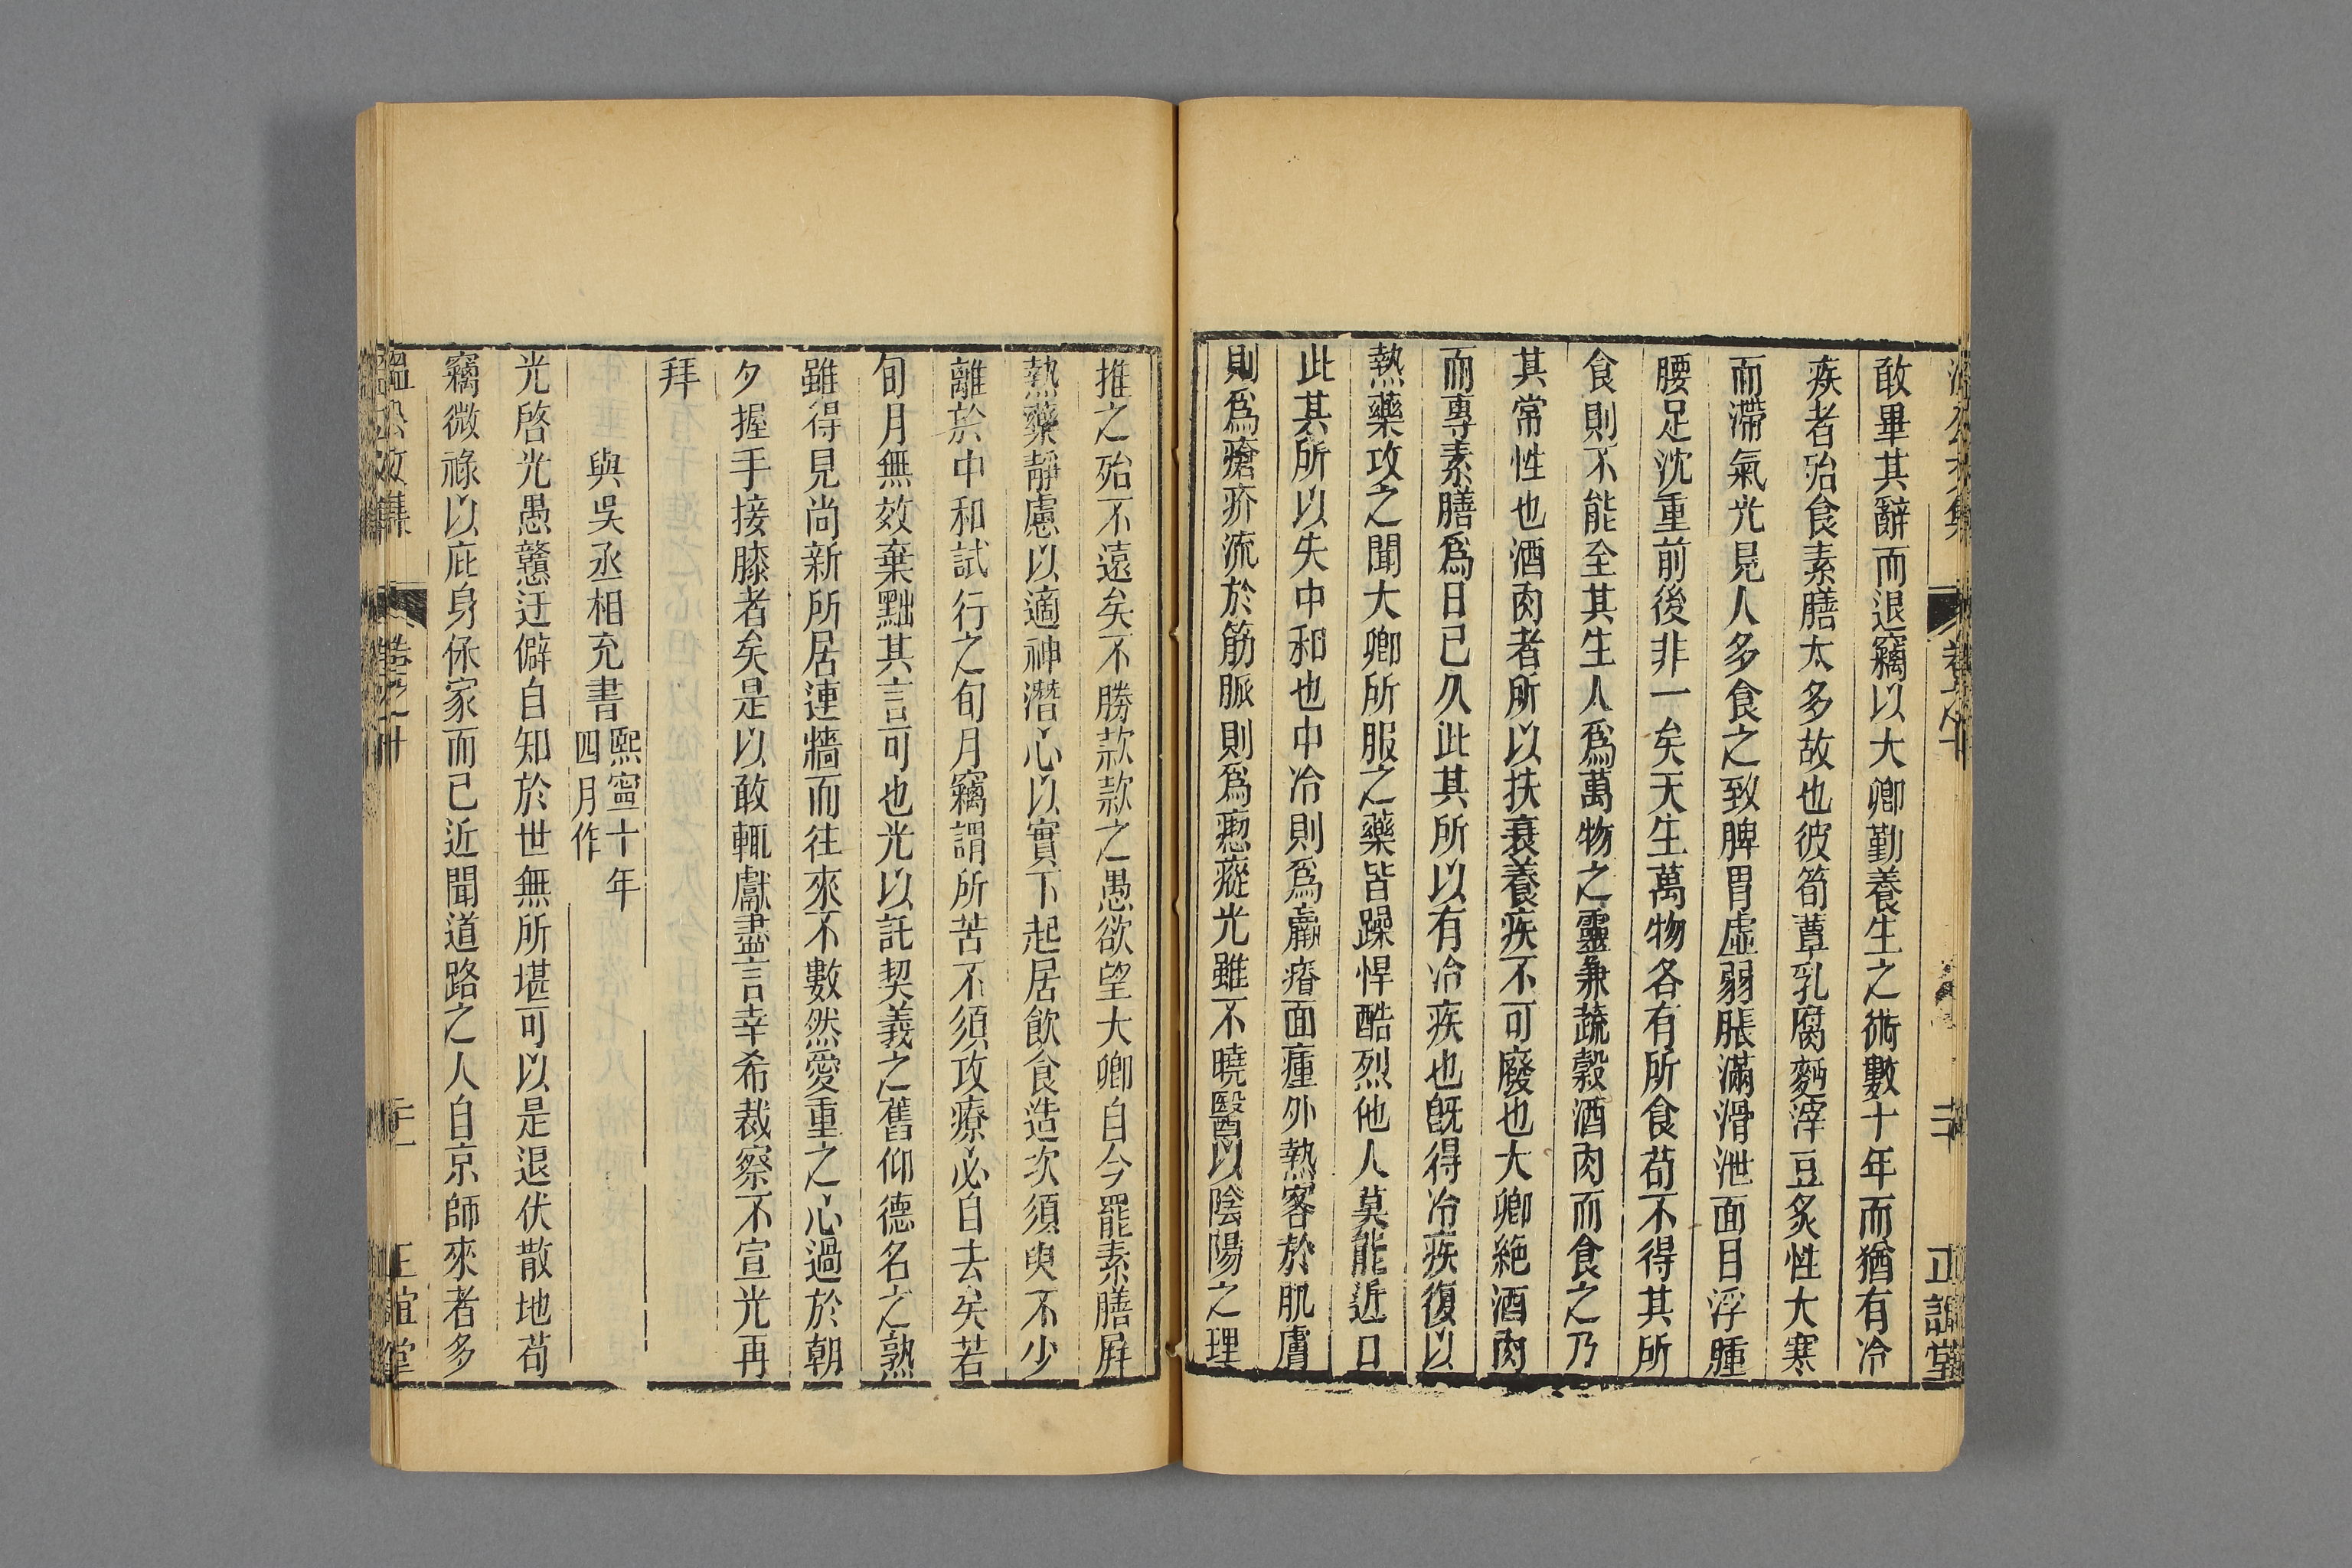 敢畢其辭而退竊以大卿勤養生之術數十年而猶有冷
疾者殆食素膳太多故也彼筍蕈乳腐麪滓豆炙性大寒
而滯氣光見人多食之致脾胃虛弱脹滿滑泄面目浮腫
腰足沈重前後非一矣天生萬物各有所食苟不得其所
食則不能至其生人爲萬物之靈兼蔬穀酒肉而食之乃
其常性也酒肉者所以扶衰養疾不可廢也大卿絶酒肉
而專素膳爲日已久此其所以有冷疾也旣得冷疾復以
熱藥攻之聞大卿所服之藥皆躁悍酷烈他人莫能近口
此其所以失中和也中冷則爲羸瘠面瘇外熱客於肌膚
則爲瘡疥流於筋脈則爲瘛瘲光雖不曉醫以陰陽之理
推之殆不遠矣不勝款款之愚欲望大卿自今罷素膳屛
熱藥靜慮以適神潛心以實下起居飲食造次須臾不少
離於中和試行之旬月竊謂所苦不須攻療必自去矣若
旬月無效棄黜其言可也光以託契義之舊仰德名之熟
雖得見尚新所居連牆而往來不數然愛重之心過於朝
夕握手接膝者矣是以敢輒獻盡言幸希裁察不宣光再
拜
與吳丞相充書熙寧十年
四月作
光啓光愚戇迂僻自知於世無所堪可以是退伏散地苟
竊微祿以庇身保家而已近聞道路之人自京師來者多
溫公文集
卷之十
正誼堂